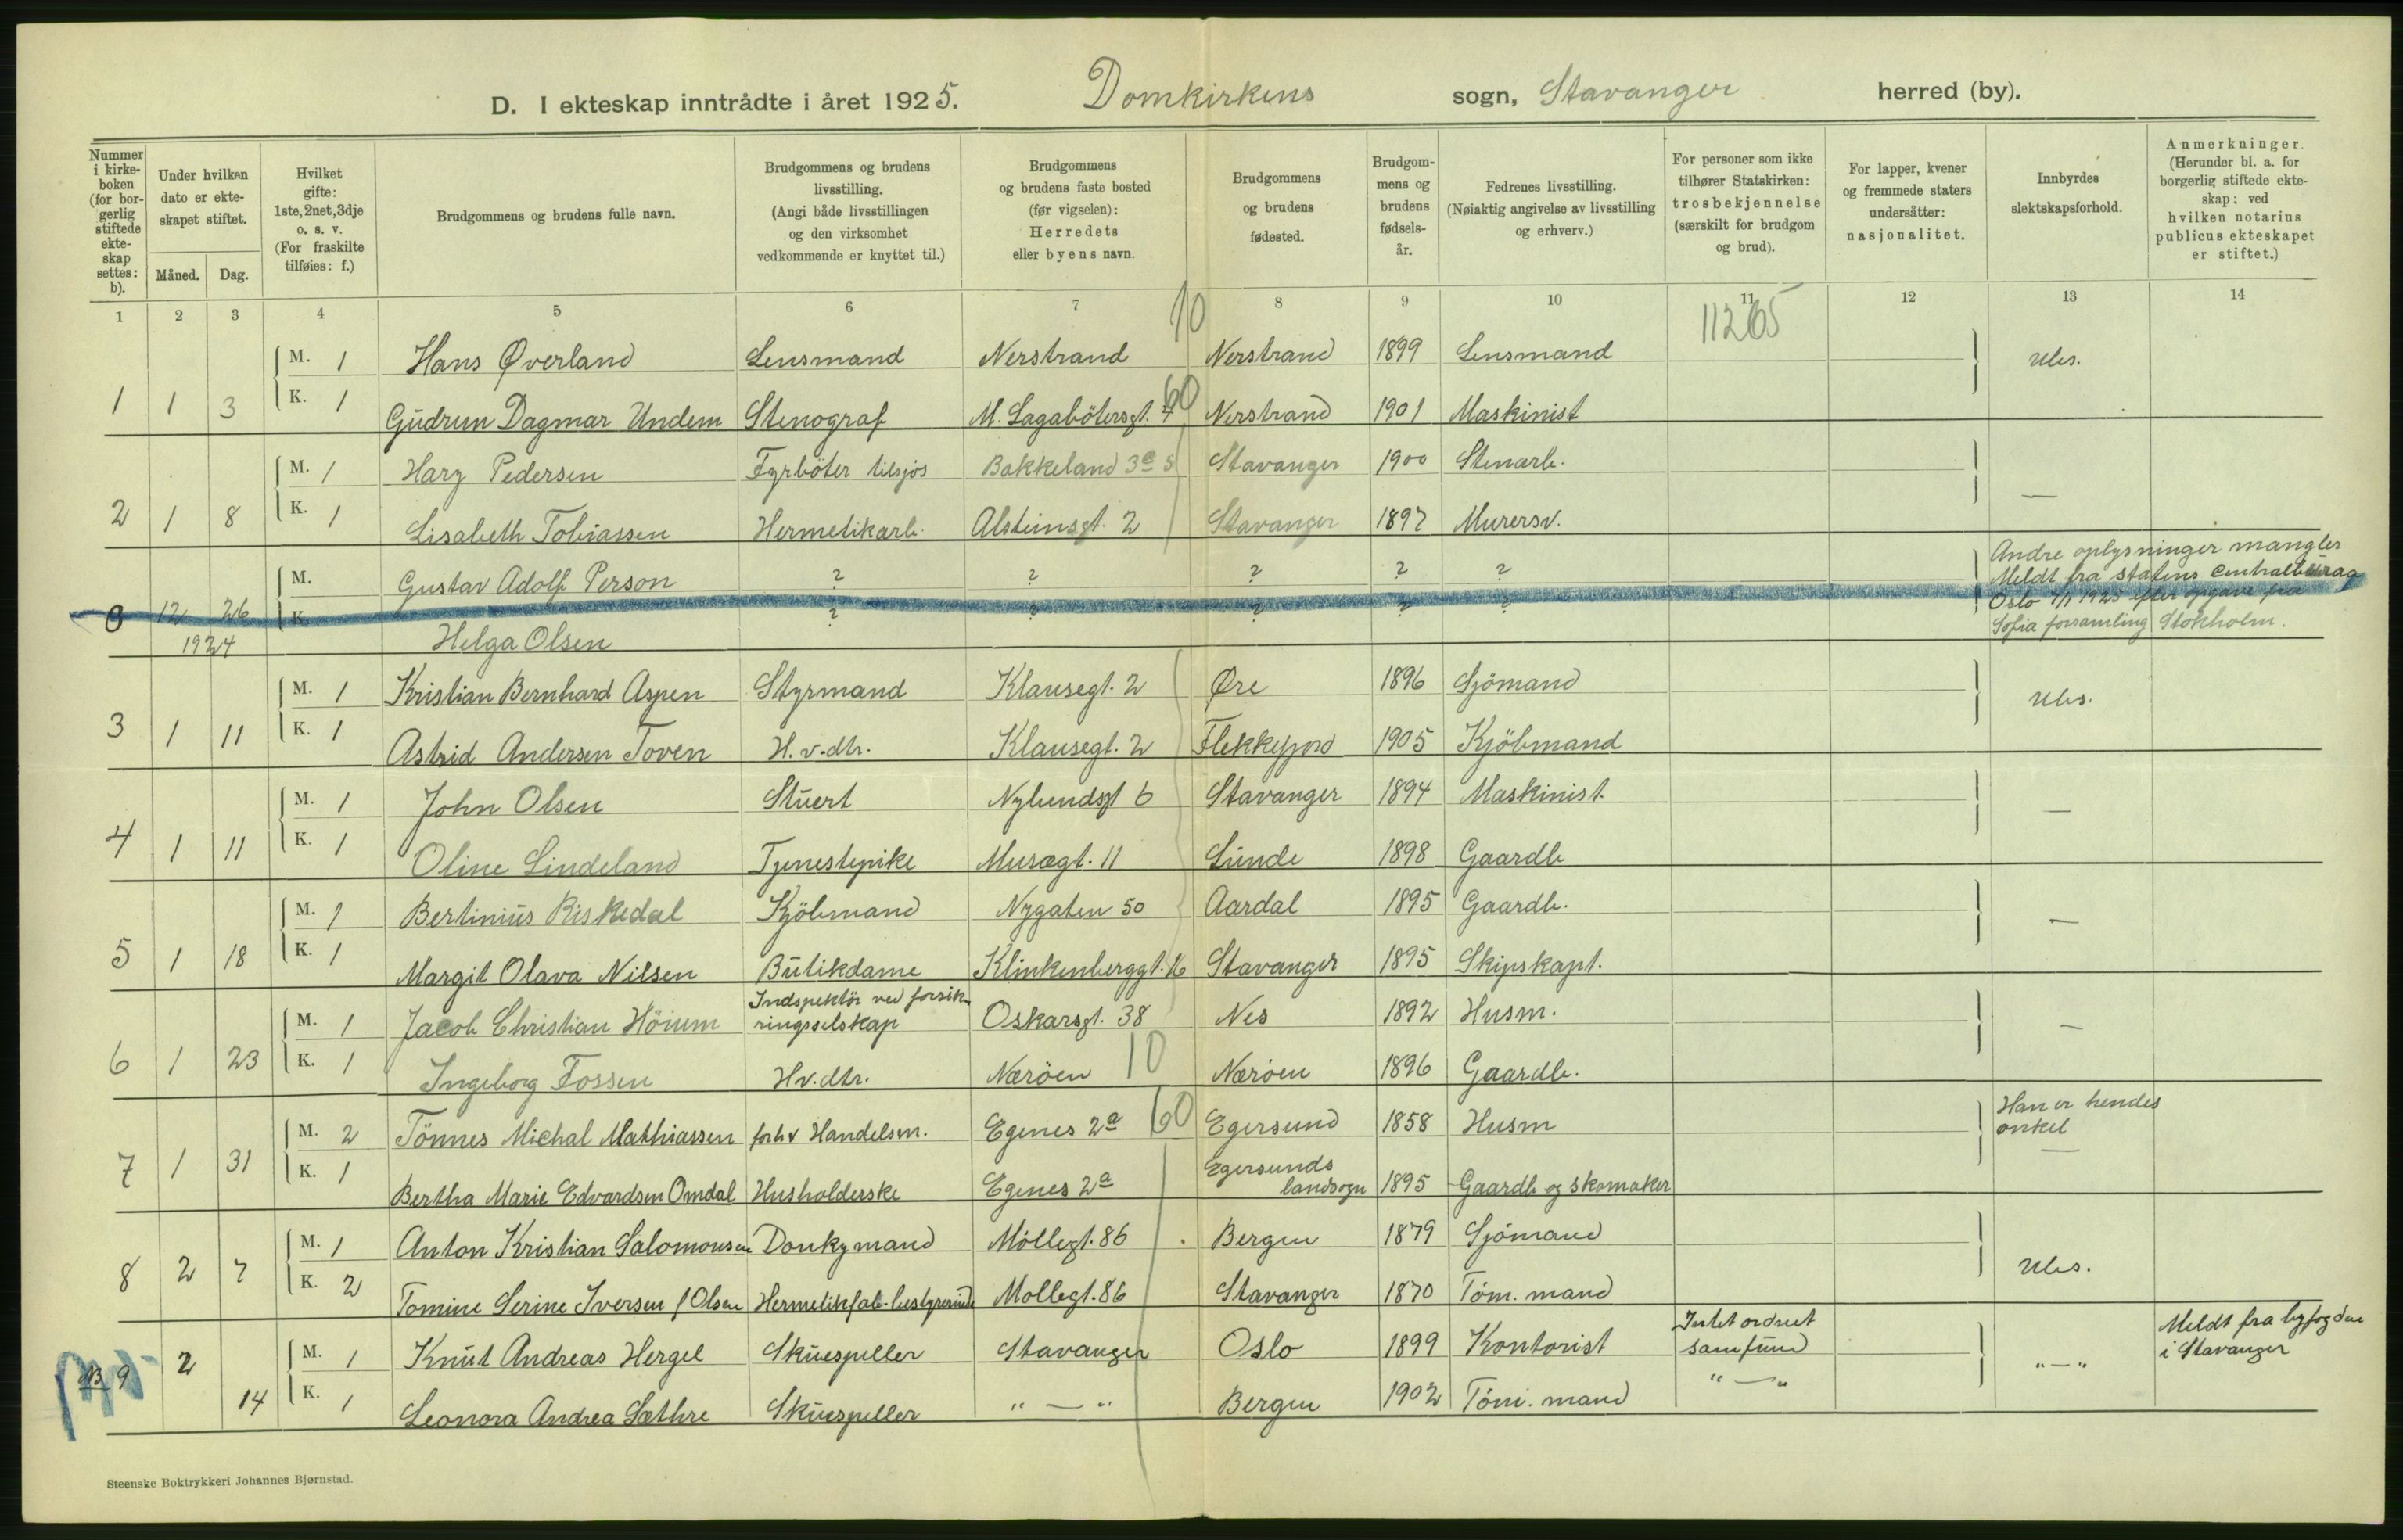 D. I ekteskap inntrådte i året 1925. Domkirkens sogn, Stavanger herred (by).
Nummer i kirkeboken (for borgerlig stiftede ekteskap settes: b).
Under hvilken dato er ekteskapet stiftet.
Måned. Dag.
Hvilket gifte: 1ste, 2net, 3dje o. s. v. (For fraskilte tilføies: f.)
Brudgommens og brudens fulle navn.
Brudgommens og brudens livsstilling. (Angi både livsstillingen og den virksomhet vedkommende er knyttet til.)
Brudgommens og brudens faste bosted (før vigselen): Herredets eller byens navn.
Brudgommens og brudens fødested.
Brudgommens og brudens fødselsår.
Fedrenes livsstilling. (Nøiaktig angivelse av livsstilling og erhverv.)
For personer som ikke tilhører Statskirken: trosbekjennelse (særskilt for brudgom og brud).
For lapper, kvener og fremmede staters undersåtter: nasjonalitet.
Innbyrdes slektskapsforhold.
Anmerkninger. (Herunder bl. a. for borgerlig stiftede ekteskap: ved hvilken notarius publicus ekteskapet er stiftet.)
1 2 3 4 5 6 7 8 9 10 11 12 13 14
10 11265
M. 1 Hans Øverland Lensmand Nerstrand Nerstrand 1899 Lensmand Ubs.
1 1 3 K. 1 Gudrun Dagmar Undem Stenograf M. Lagabötersgt. 4 60 Nerstrand 1901 Maskinist
M. 1 Hary Pedersen Fyrböter tilsjös Bakkeland 3e s Stavanger 1900 Stenarb.
2 1 8 K. 1 Lisabeth Tobiassen Hermetikarb. Alsteinsgt. 2 Stavanger 1897 Murersv. —
M. Gustav Adolf Person ? ? ? ? ? Andre oplysninger mangler
Meldt fra statens Centralbyraa
0 12 26 K. ? ? ? ? ? Oslo 7/1 1925 efter opgave fra
1924 Helga Olsen Sofia forsamling Stokholm.
M. 1 Kristian Bernhard Aspen Styrmand Klausegt. 2 Øre 1896 Sjömand Ubs.
3 1 11 K. 1 Astrid Andersen Toven H.v.dtr. Klausegt. 2 Flekkefjord 1905 Kjöbmand
M. 1 John Olsen Stuert Nylundsgt 6 Stavanger 1894 Maskinist. —
4 1 11 K. 1 Oline Lindeland Tjenestepike Musægt. 11 Lunde 1898 Gaardb
M. 1 Bertinius Riskedal Kjöbmand Nygaten 50 Aardal 1895 Gaardb. —
5 1 18 K. 1 Margit Olava Nilsen Butikdame Klinkenberggt. 16 Stavanger 1895 Skipskapt.
Indspektör ved forsik-
M. 1 Jacob Christian Höium ringsselskap Oskarsgt. 38 Nes 1892 Husm. —
6 1 23 K. 1 Ingeborg Fossen Hv.dtr. Næröen 10 Næröen 1896 Gaardb.
M. 2 Tönnes Michal Mathiassen forhv Handelsm. Egenes 2a 60 Egersund 1858 Husm Han er hendes
onkel —
7 1 31 K. 1 Bertha Marie Edvardsen Omdal Husholderske Egenes 2a Egersunds landsogn 1895 Gaardb og skomaker
M. 1 Anton Kristian Salomonsen Donkymand Möllegt. 86 Bergen 1879 Sjömand Ubs.
8 2 7 K. 2 Tomine Serine Iversen f Olsen Hermetikfab. bestyrerinde Mollegt. 86 Stavanger 1870 Töm.mand
B 9 2 M. 1 Knut Andreas Hergel Skuespiller Stavanger Oslo 1899 Kontorist Intet ordnet samfund "—" Meldt fra byfogden i Stavanger
14 K. 1 Leonora Andrea Sæthre Skuespiller "—" Bergen 1902 Töm.mand "—"
Steenske Boktrykkeri Johannes Bjørnstad.